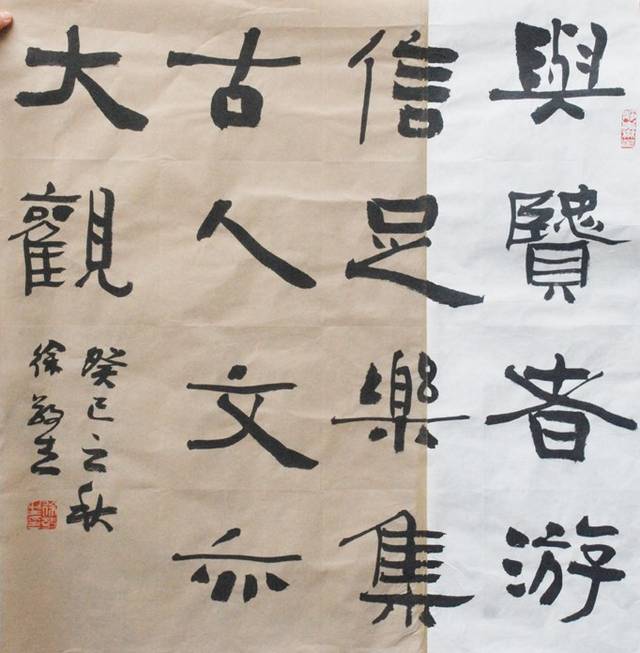 與賢者游
信足樂集
古人文亦
大觀
癸巳之秋
徐